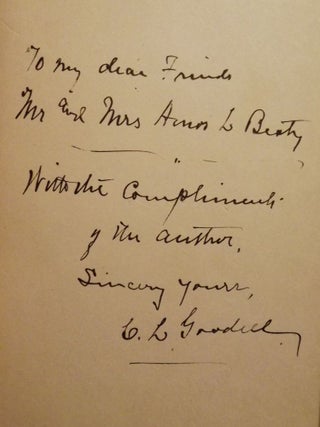 To my dear Friends
Mr and Mrs Amos L Beaty
With the Compliments
of the author,
Sincerely yours,
C. L. Goodell.